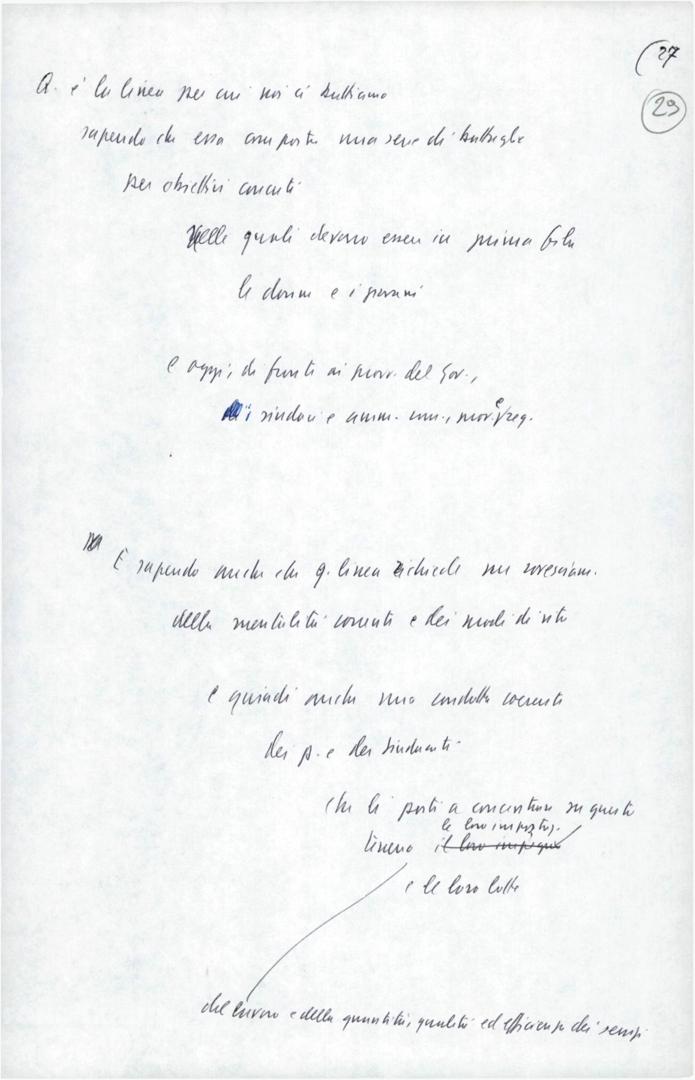 (27
29
Q. è la linea per cui noi ci battiamo
sapendo che essa comporta una serie di battaglie
per obiettivi concreti
nelle quali devono essere in prima fila
le donne e i giovani
e oggi, di fronte ai provv. del Gov.,
i sindaci e amm. com., prov. e reg.
E sapendo anche che q. linea richiede un rovesciam.
della mentalità corrente e dei modi di vita
e quindi anche una condotta coerente
dei p. e dei sindacati
che li porti a concentrare su questo
le loro impostaz.
terreno il loro impegno
e le loro lotte
del lavoro e della quantità, qualità ed efficienza dei servizi